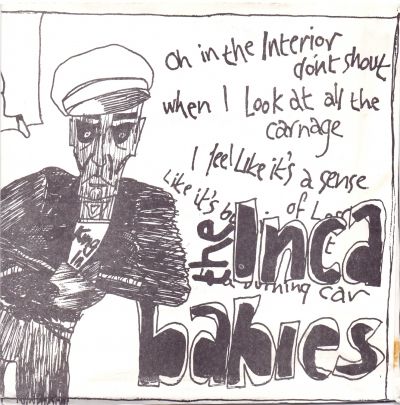 Oh in the Interior
don't shout
when I Look at all the
carnage
I feel Like it's a sense
Like it's
of
the Inca
burning car
babies
King